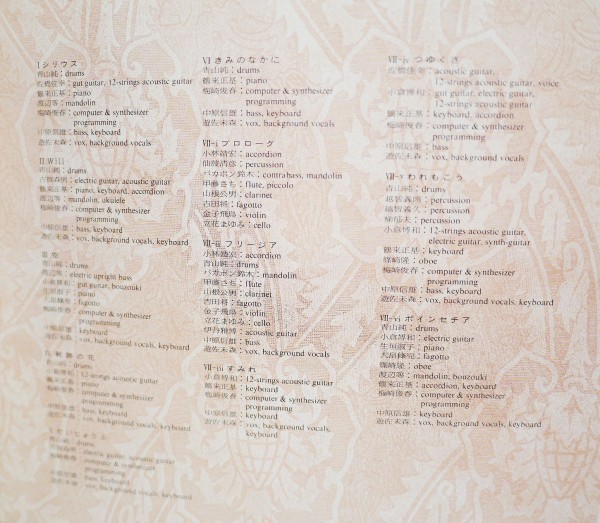 I シリウス
青山純：drums
佐橋佳幸：gut guitar, 12-strings acoustic guitar
鶴来正基：piano
渡辺等：mandolin
梅崎俊春：computer & synthesizer
programming
中原信雄：bass, keyboard
遊佐未森：vox, background vocals
II Will
青山純：drums
古賀森男：electric guitar, acoustic guitar
鶴来正基：piano, keyboard, accordion
渡辺等：mandolin, ukulele
梅崎俊春：computer & synthesizer
programming
中原信雄：bass,
遊佐未森：vox, background vocals, keyboard
青山純：drums
渡辺等：electric upright bass
小倉博和：gut guitar, bouzouki
生垣淑子：piano
大畠條亮：fagotto
梅崎俊春：computer & synthesizer
programming
中原信雄：keyboard
遊佐未森：vox, background vocals, keyboard
の花
: drums
: 12-strings acoustic guitar
: piano
: computer & synthesizer
programming
: bass, keyboard
: vox, background vocals,
keyboard
: drums
: electric guitar, acoustic guitar
: computer & synthesizer
programming
: bass, keyboard
: vox, background vocals, keyboard
VI きみのなかに
青山純：drums
鶴来正基：piano
梅崎俊春：computer & synthesizer
programming
中原信雄：bass, keyboard
遊佐未森：vox, background vocals
VII-i プロローグ
小林靖宏：accordion
仙波清彦：percussion
バカボン鈴木：contrabass, mandolin
甲藤さち：flute, piccolo
山根公男：clarinet
吉田将：fagotto
金子飛鳥：violin
立花まゆみ：cello
VII-ii フリージア
小林靖宏：accordion
青山純：drums
バカボン鈴木：mandolin
甲藤さち：flute
山根公男：clarinet
吉田将：fagotto
金子飛鳥：violin
立花まゆみ：cello
伊丹雅博：acoustic guitar
中原信雄：bass
遊佐未森：vox, background vocals
VII-iii すみれ
小倉博和：12-strings acoustic guitar
鶴来正基：keyboard
梅崎俊春：computer & synthesizer
programming
中原信雄：keyboard
遊佐未森：vox, background vocals,
keyboard
VII-iv つゆくさ
佐橋佳幸：acoustic guitar,
12-strings acoustic guitar, voice
小倉博和：gut guitar, electric guitar,
12-strings acoustic guitar
鶴来正基：keyboard, accordion
梅崎俊春：computer & synthesizer
programming
中原信雄：bass
遊佐未森：vox, background vocals
VII-v われもこう
青山純：drums
越智義朝：percussion
越智義久：percussion
: percussion
小倉博和：12-strings acoustic guitar,
electric guitar, synth-guitar
鶴来正基：keyboard
篠崎隆：oboe
梅崎俊春：computer & synthesizer
programming
中原信雄：bass, keyboard
遊佐未森：vox, background vocals, keyboard
VII-vi ポインセチア
青山純：drums
小倉博和：electric guitar
生垣淑子：piano
大畠條亮：fagotto
篠崎隆：oboe
渡辺等：mandolin, bouzouki
鶴来正基：accordion, keyboard
梅崎俊春：computer & synthesizer
programming
中原信雄：keyboard
遊佐未森：vox, background vocals, keyboard